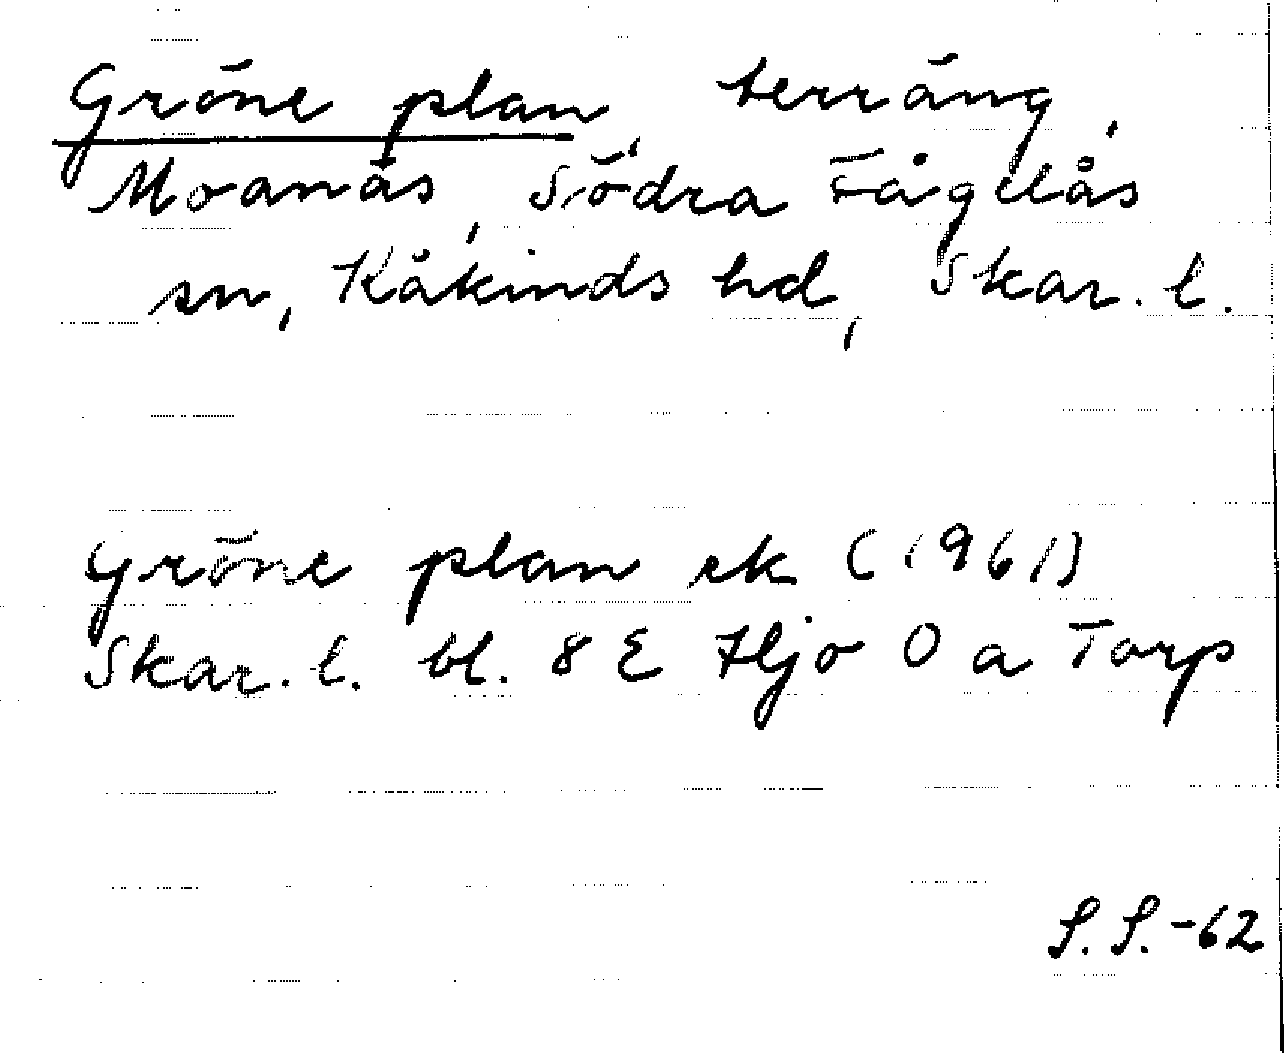 Gröne plan, terräng,
Moanäs, Södra Fågelås
sn, Kåkinds hd, Skar. l.
Gröne plan ek (1961)
Skar. l. bl. 8 E Hjo O a Torp
S. S. -62